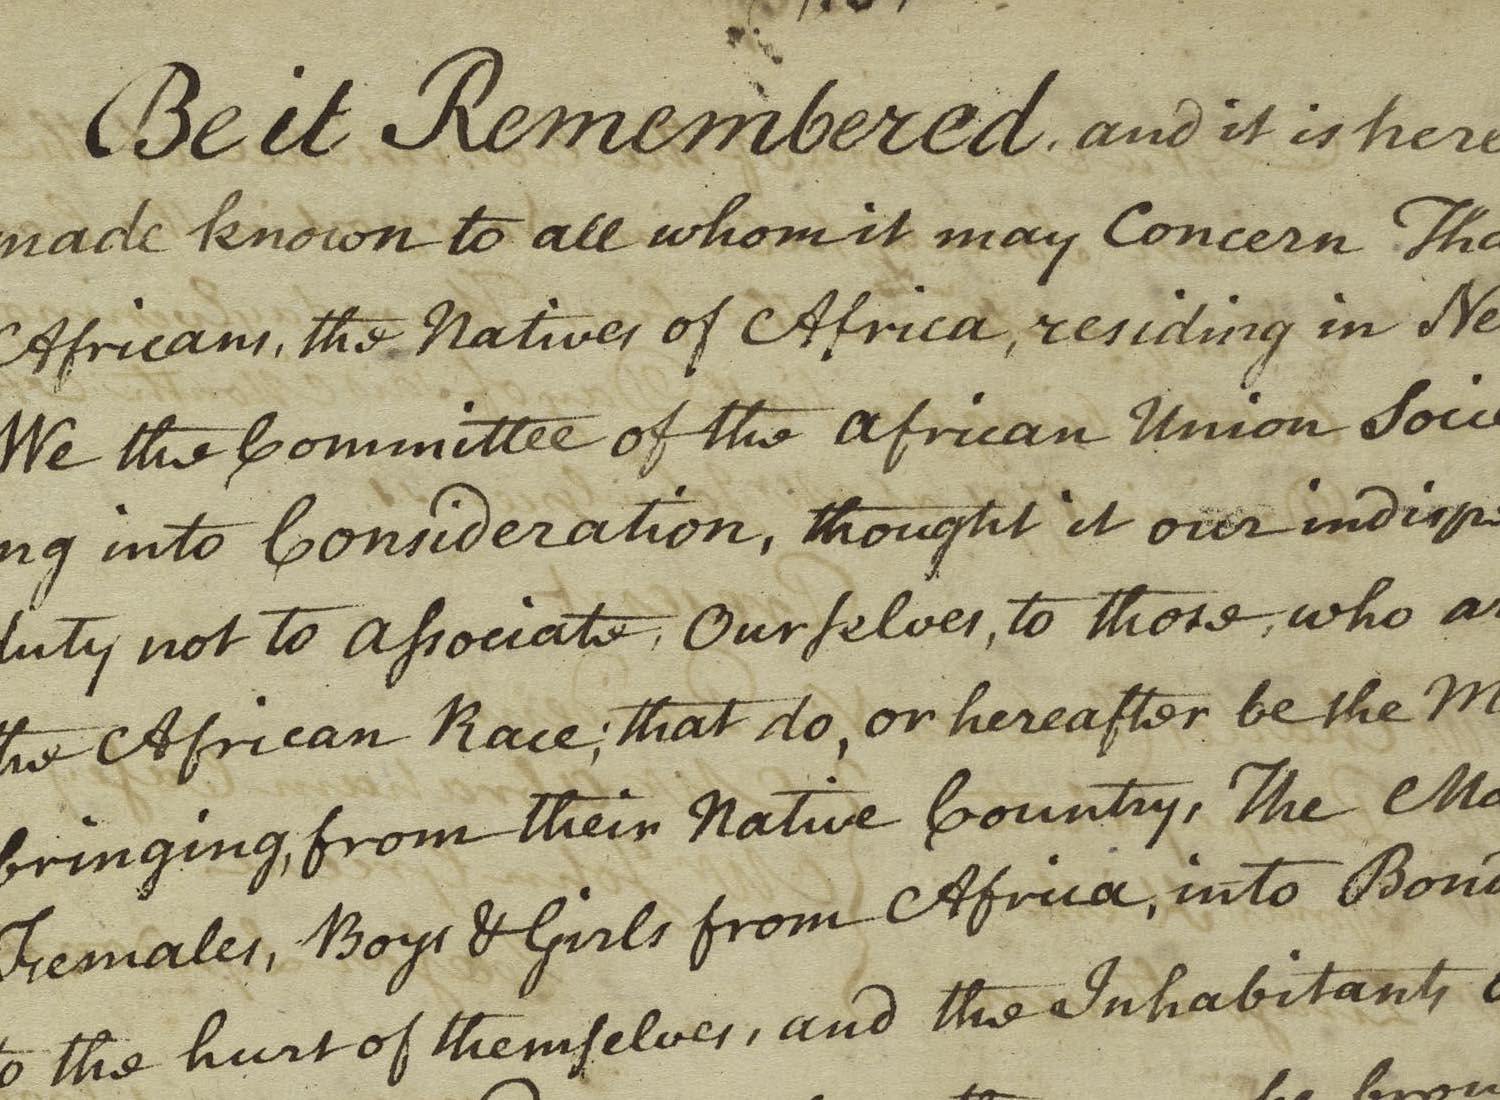 Be it Remembered. and it is here
made known to all whom it may Concern Tha
Africans, the Natives of Africa, residing in Ne
We the Committee of the african Union Socie
ng into Consideration, thought it our indisp
duty not to aſsociate, Ourſelves, to those, who a
the African Race; that do, or hereafter be the M
bringing, from their Native Country, The Ma
Females, Boys & Girls from Africa, into Bond
to the hurt of themſelves, and the Inhabitants
be brou